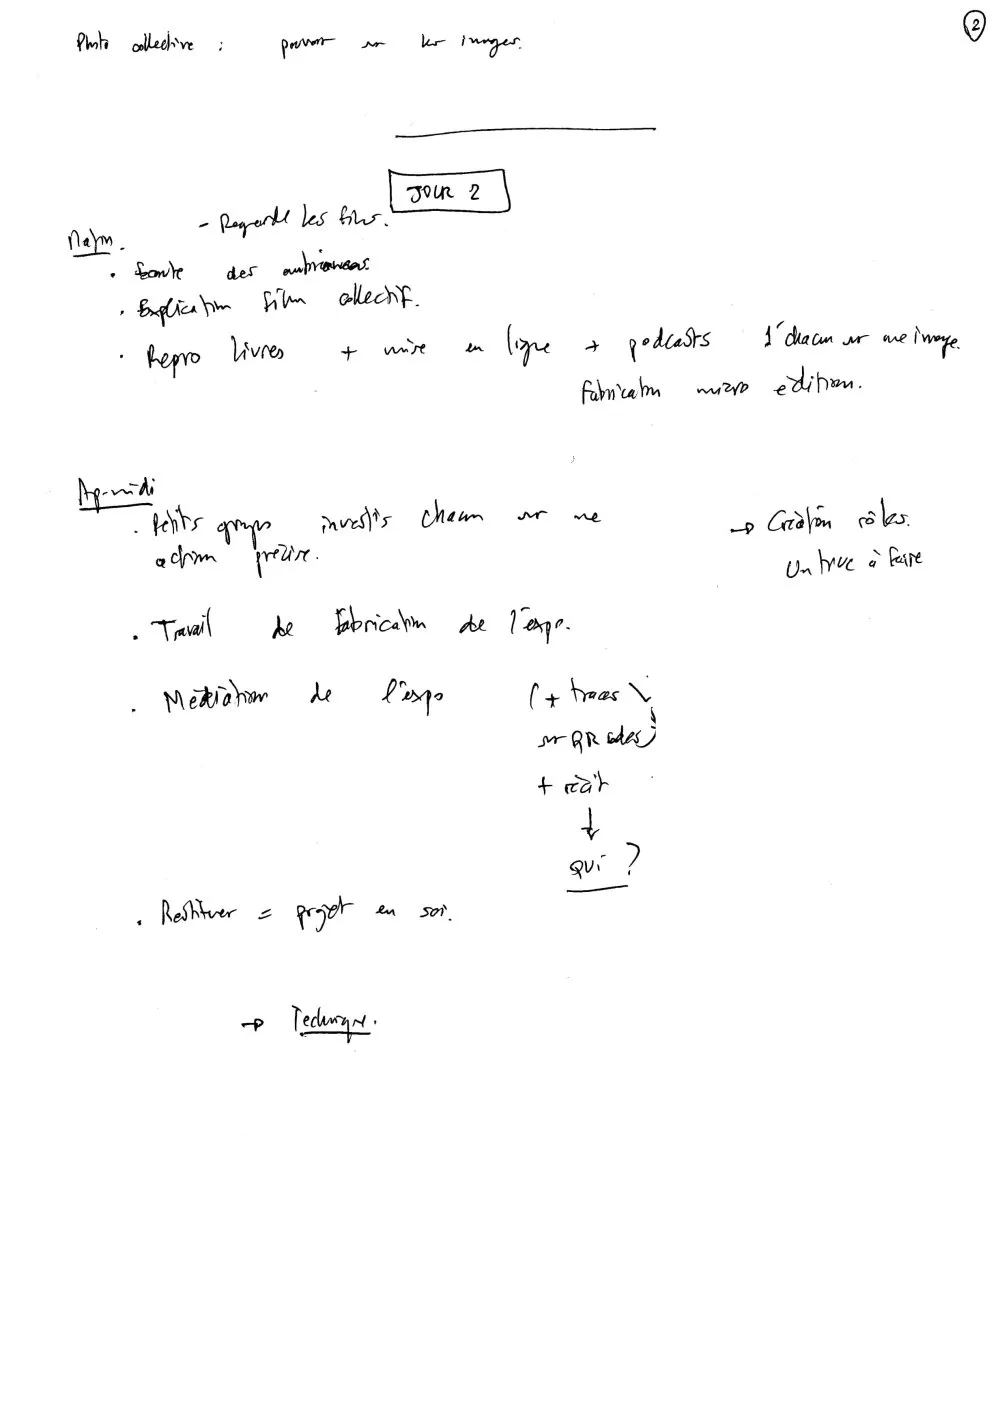 2
Photo collective : pouvoir sur les images.
JOUR 2
- Regarde les films.
Matin.
• Ecoute des
• Explication film collectif.
• Repro livres + mise en ligne + podcasts 1' chacun sur une image.
Fabrication micro édition.
Ap-midi
• Petits groupes investis chacun sur une
action précise.
→ Création rôles.
Un truc à faire
• Travail de fabrication de l'expo.
• Médiation de l'expo (+ traces
sur QR codes)
+ récit
↓
QUI ?
• Restituer = projet en soi.
→ Technique.